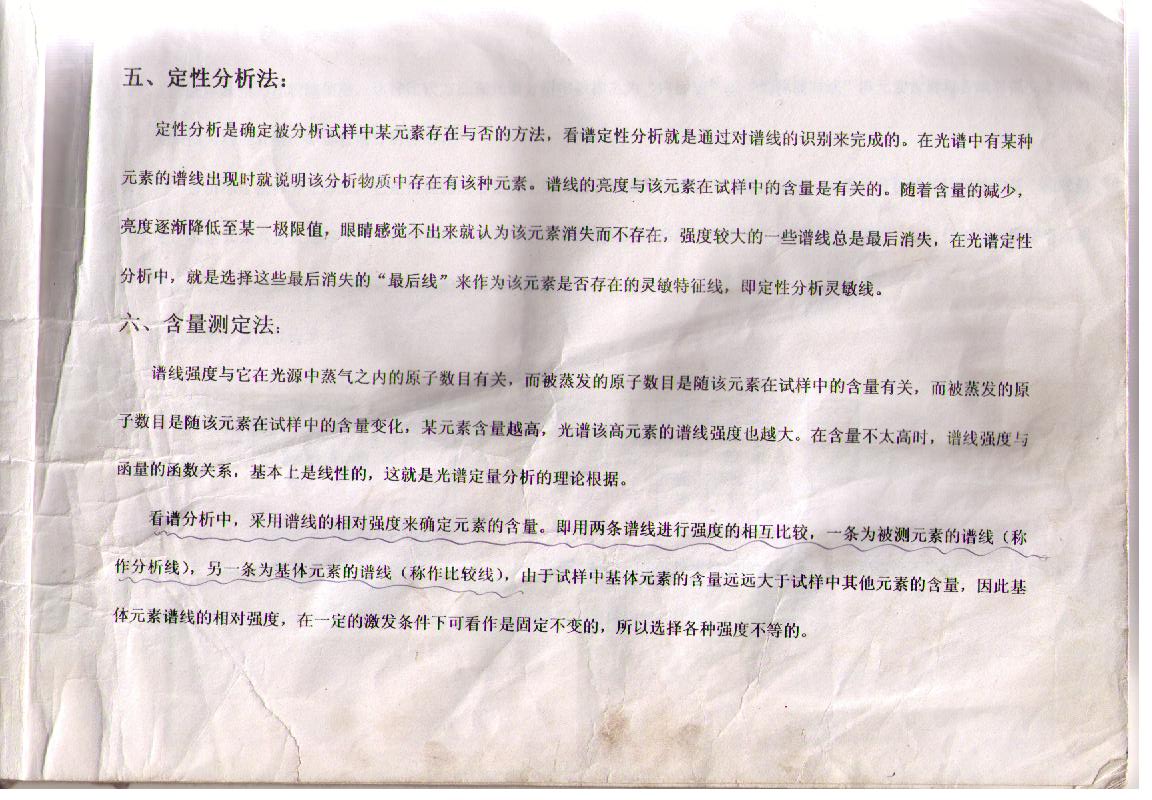 五、定性分析法：
定性分析是确定被分析试样中某元素存在与否的方法，看谱定性分析就是通过对谱线的识别来完成的。在光谱中有某种
元素的谱线出现时就说明该分析物质中存在有该种元素。谱线的亮度与该元素在试样中的含量是有关的。随着含量的减少，
亮度逐渐降低至某一极限值，眼睛感觉不出来就认为该元素消失而不存在，强度较大的一些谱线总是最后消失，在光谱定性
分析中，就是选择这些最后消失的“最后线”来作为该元素是否存在的灵敏特征线，即定性分析灵敏线。
六、含量测定法：
谱线强度与它在光源中蒸气之内的原子数目有关，而被蒸发的原子数目是随该元素在试样中的含量有关，而被蒸发的原
子数目是随该元素在试样中的含量变化，某元素含量越高，光谱该高元素的谱线强度也越大。在含量不太高时，谱线强度与
函量的函数关系，基本上是线性的，这就是光谱定量分析的理论根据。
看谱分析中，采用谱线的相对强度来确定元素的含量。即用两条谱线进行强度的相互比较，一条为被测元素的谱线（称
作分析线），另一条为基体元素的谱线（称作比较线），由于试样中基体元素的含量远远大于试样中其他元素的含量，因此基
体元素谱线的相对强度，在一定的激发条件下可看作是固定不变的，所以选择各种强度不等的。